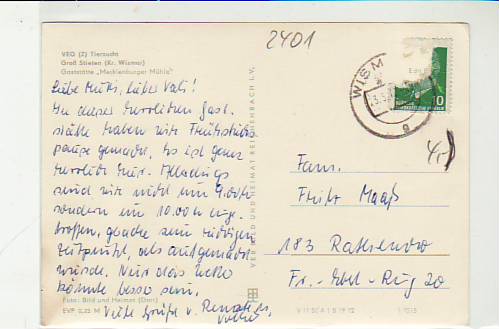 2401
VEG (Z) Tierzucht
Groß Stieten (Kr. Wismar)
Gaststätte „Mecklenburger Mühle"
Liebe Mutti, lieber Vati!
In dieser Gast-
stätte haben wir Frühstücks-
pause gemacht. Es ist ganz
hier. Allerdings
sind wir nicht um 9.00
sondern um 10.00 h einge-
troffen, gerade zum richtigen
Zeitpunkt, als aufgemacht
wurde. Nur das Wetter
könnte besser sein.
Viele Grüße v. Renate u.
Foto: Bild und Heimat (Darr)
EVP 0,25 M
VEB BILD UND HEIMAT REICHENBACH I.V.
WISM
10
Fam.
Fritz Maaß
183 Rathenow
Fr.-Ebel-Ring 20